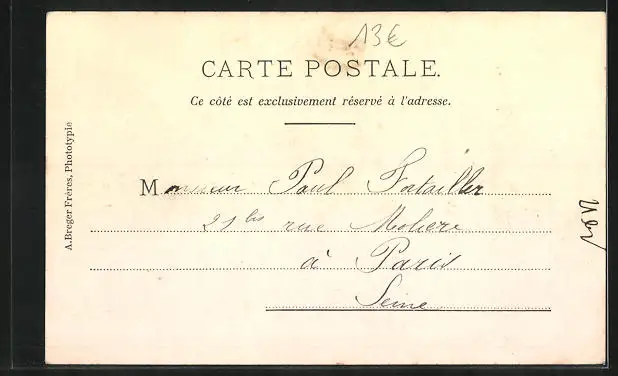 13€
CARTE POSTALE.
Ce côté est exclusivement réservé à l'adresse.
Monsieur Paul Fortailler
21 bis rue Moliere
à Paris
Seine
A. Breger Frères, Phototypie